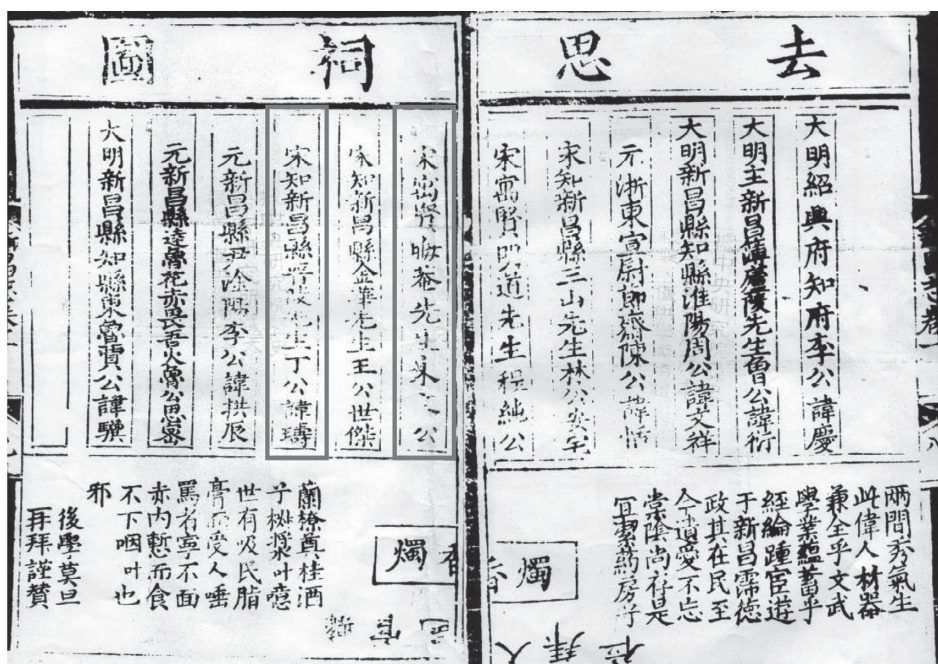 去思
祠圖
大明紹興府知府李公諱慶
大明主新昌簿廬陵先生曾公諱衍
大明新昌縣知縣淮陽周公諱文祥
元浙東宣尉郎齋陳公諱恬
宋知新昌縣三山先生林公安宅
宋寓賢明道先生程純公
宋寓賢晦菴先生朱文公
宋知新昌縣金華先生王公世傑
宋知新昌縣先生丁公諱璹
元新昌縣尹淦陽李公諱拱辰
元新昌縣達魯花赤畏吾火魯公思密
大明新昌縣知縣東魯賈公諱驥
兩間秀氣生
此偉人材器
兼全乎文武
學業蘊蓄乎
經綸踵宦遊
于新昌霈德
政其在民至
今遺愛不忘
棠陰尚存是
宜潔葯房兮
蘭橑奠桂酒
兮椒漿吁噫
世有吸民脂
膏而受人唾
罵者寧不面
赤內慙而食
不下咽吁也
邪
後學莫旦
再拜謹贊
香燭
香燭